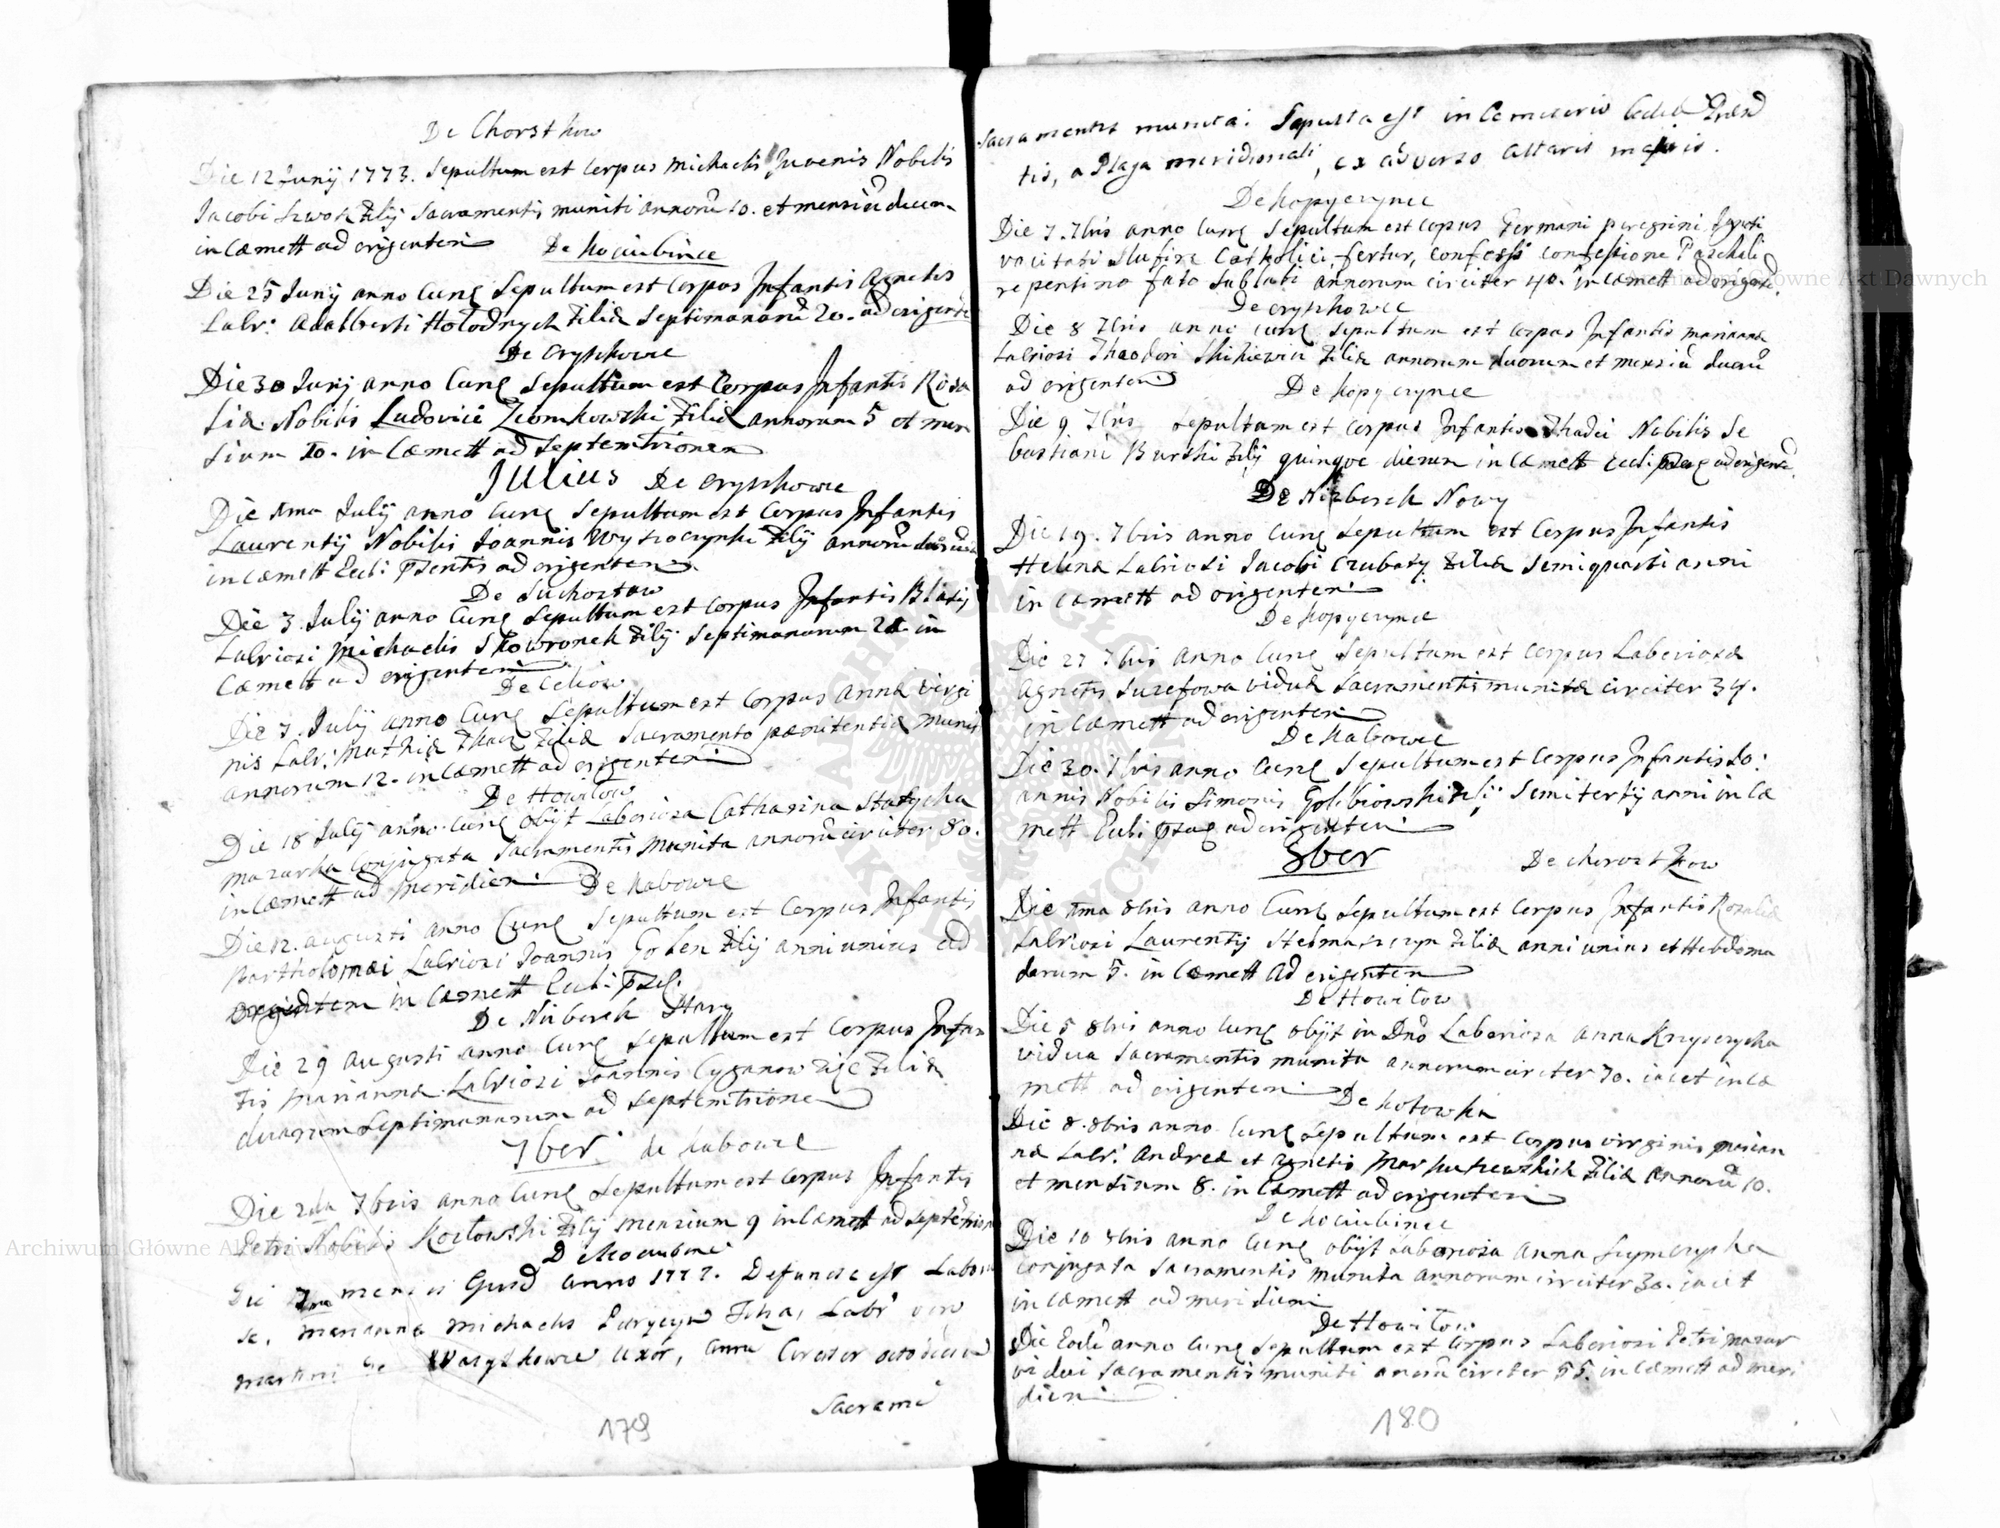 De Chorstkow
Die 12 Junij 1773. Sepultum est Corpus Michaelis Juvenis Nobilis
Jacobi filij Sacramentis muniti annorū 10. et mensiū decem
in Cæmett ad origentem
De Kociubince
Die 25 Junij anno Curr Sepultum est Corpus Infantis Agnetis
Labr: Adalberti Hołodnych filiæ Septimanarū 20. ad origente
De Oryszkowce
Die 30 Junij anno Curr Sepultum est Corpus Infantis Rosa
liæ Nobilis Ludovici Ziomkowski filiæ annorum 5 et men
sium 10. in Cæmett ad Septemtrionem
Julius De Oryszkowce
Die 1ma Julij anno Curr Sepultum est Corpus Infantis
Laurentij Nobilis Joannis Wysoczynski filij annorū
in Cæmett Eccl: Psentis ad origentem
De Suchostaw
Die 3 Julij anno Curr Sepultum est Corpus Infantis Blasij
Labriosi Michaelis Skowronek filij Septimanarum 22 in
Cæmett ad origentem
De Celiow
Die 7. Julij anno Curr Sepultum est Corpus Annæ Virgi
nis Labr: Mathiæ Tkacz filiæ Sacramento pænitentiæ munit
annorum 12. in Cæmett ad origentem
De Howilow
Die 18 Julij anno Curr Obijt Laboriosa Catharina Stasycha
Mazurka Conjugata Sacramentis Munita annorū circiter 80.
in Cæmett ad Meridiem
De Kabowce
Die 12. Augusti anno Curr Sepultum est Corpus Infantis
Bartholomæi Labriosi Joannis Golen filij anni unius ad
origentem in Cæmett Eccl: Psēs.
De Niżborek Stary
Die 29 Augusti anno Curr Sepultum est Corpus Infan
tis Mariannæ Labriosi Joannis Cyganow filiæ
duarum Septimanarum ad Septemtrionem
7ber de Kabowce
Die 2da 7bris anno Curr Sepultum est Corpus Infantis
Petri Nobilis Kozłowski filij Mensium 9 in Cæmett ad Septemtrion
De Kociubince
Die 7ma mensis Ejusd anno 1773. Defuncta est Labori
sa, Marianna Michaelis filia, Labr vero
Martini de Wasylkowce Uxor, Circiter octodecim
Sacramē
179
Sacramentis munita: Sepulta est in Cemeterio
tis, a Plaga meridionali, ex adverso Altaris majoris.
De Kopyczynce
Die 7. 7bris anno Curr Sepultum est Copus Germani peregrini Ignoti
Catholici fertur, Confessi Confessione Paschali
repentino fato Sublati annorum circiter 40. in Cæmett ad origent.
De Oryszkowce
Die 8 7bris anno Curr Sepultum est Corpus Infantis Mariannæ
Labriosi Theodori filiæ annorum duorum et mensiū duorū
ad origentem
De Kopyczynce
Die 9 7bris Sepultum est Corpus Infantis Thadei Nobilis Se
bastiani Burski filij quinque dierum in Cæmett Eccl: ad origent.
De Niżborek Nowy
Die 19. 7bris anno Curr Sepultum est Corpus Infantis
Helenæ Labriosi Jacobi Czubaty filiæ Semiquarti anni
in Cæmett ad origentem
De Kopyczynce
Die 27 7bris anno Curr Sepultum est Corpus Laboriosæ
Agnetis Juzefowa viduæ Sacramentis munitæ circiter 34.
in Cæmett ad origentem
De Kabowce
Die 30. 7bris anno Curr Sepultum est Corpus Infantis Jo:
annis Nobilis Simonis Golebiowski filij Semitertij anni in Cæ
mett Eccl: ad origentem
8ber De Chorostkow
Die 1ma 8bris anno Curr Sepultum est Corpus Infantis Rosaliæ
Labriosi Laurentij Stelmaszczyn filiæ anni unius et Hebdoma
darum 5. in Cæmett ad origentem
De Howilow
Die 5 8bris anno Curr Obijt in Dno Laboriosa Anna Krzyszycha
vidua Sacramentis munita annorum circiter 70. jacet in Cæ
mett ad origentem
De Kotowka
Die 8. 8bris anno Curr Sepultum est Corpus virginis Marian
næ Labr: Andreæ et Agnetis filiæ Annorū 10.
et mensium 8. in Cæmett ad origentem
De Kociubince
Die 10 8bris anno Curr Obijt Laboriosa Anna Szymczyszka
Conjugata Sacramentis munita Annorum circiter 30. jacet
in Cæmett ad meridiem
De Howilow
Die Eadē anno Curr Sepultum est Corpus Laboriosi Petri Mazur
vidui Sacramentis muniti anorū circiter 55. in Cæmett ad meri
diem
180
Archiwum Główne Akt Dawnych